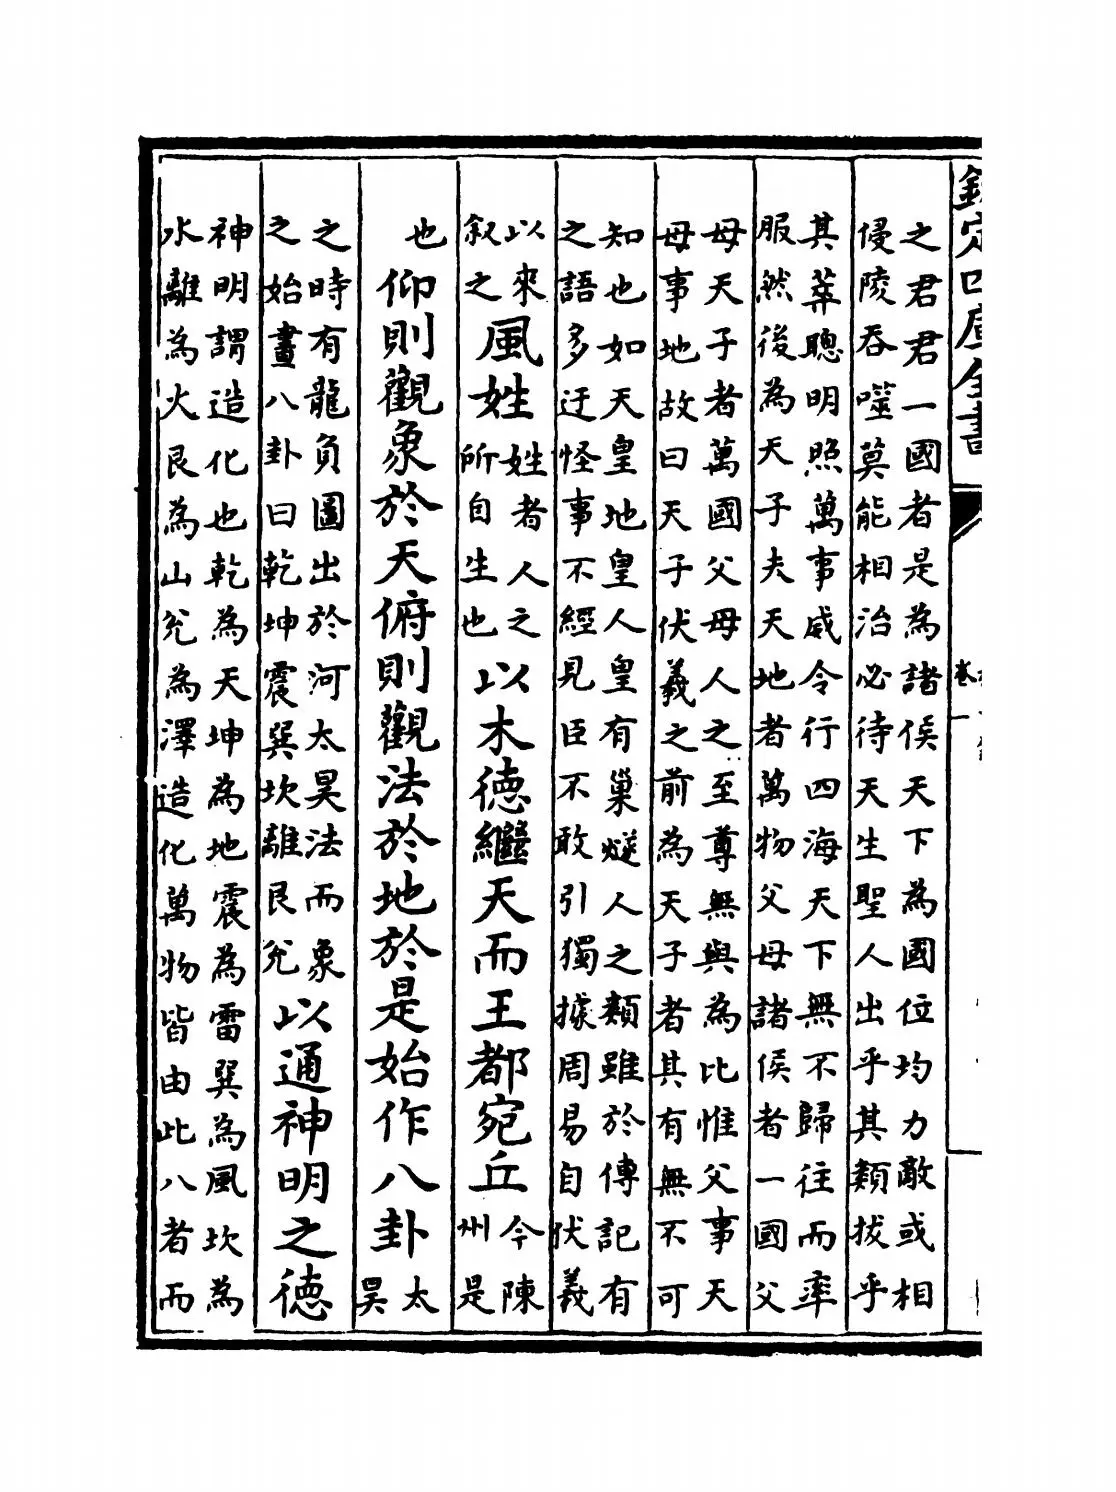 欽定四庫全書
卷一
之君君一國者是為諸侯天下為國位均力敵或相
侵陵吞噬莫能相治必待天生聖人出乎其類拔乎
其萃聰明照萬事威令行四海天下無不歸往而率
服然後為天子夫天地者萬物父母諸侯者一國父
母天子者萬國父母人之至尊無與為比惟父事天
母事地故曰天子伏羲之前為天子者其有無不可
知也如天皇地皇人皇有巢燧人之類雖於傳記有
之語多迂怪事不經見臣不敢引獨據周易自伏羲
以來叙之風姓姓者人之所自生也以木德繼天而王都宛丘今陳州是
也仰則觀象於天俯則觀法於地於是始作八卦太昊
之時有龍負圖出於河太昊法而象之始畫八卦曰乾坤震巽坎離艮兊以通神明之德
神明謂造化也乾為天坤為地震為雷巽為風坎為
水離為火艮為山兊為澤造化萬物皆由此八者而